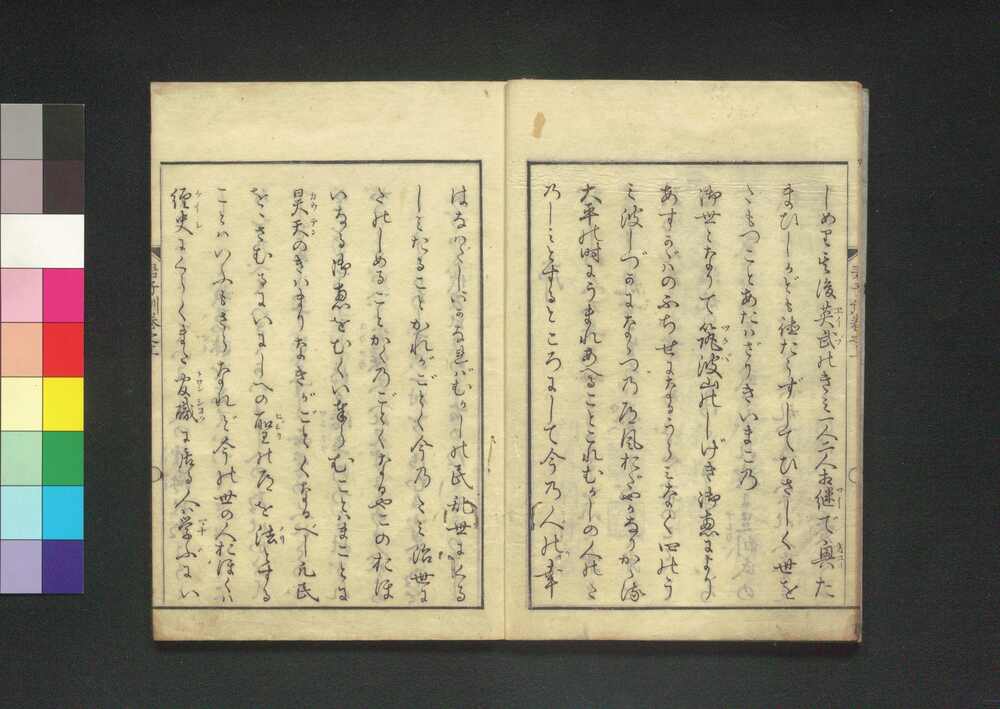 しめりき後英武のきミ一人二人相継で興た
まひしかども徳たらずしてひさしく世を
たもつことあたはざりきいまこの
御世となりて筑波山のしげき御恵にまより
あすかゞはのふちせになるうらミなく四のう
ミ波しづかにななつの道風おだやかなりかゝる
太平の時にうまれあへることこれむかしの人のた
のしミとするところにして今の人の幸
はなはだしいかなればむかしの民乱世にくる
しミたることかれがごとく今のたミ治世に
たのしめることかくのごとくなるやこのおほ
いなる御恵をむくい奉らむことまことに
昊天のきはまりなきがごとくなるべし凡民
をゝさむるにいにしへの聖の道を法とする
ことハいふもさらなれど今の世の人おほくハ
経史にくらくまた官職に居る人学ぶにい